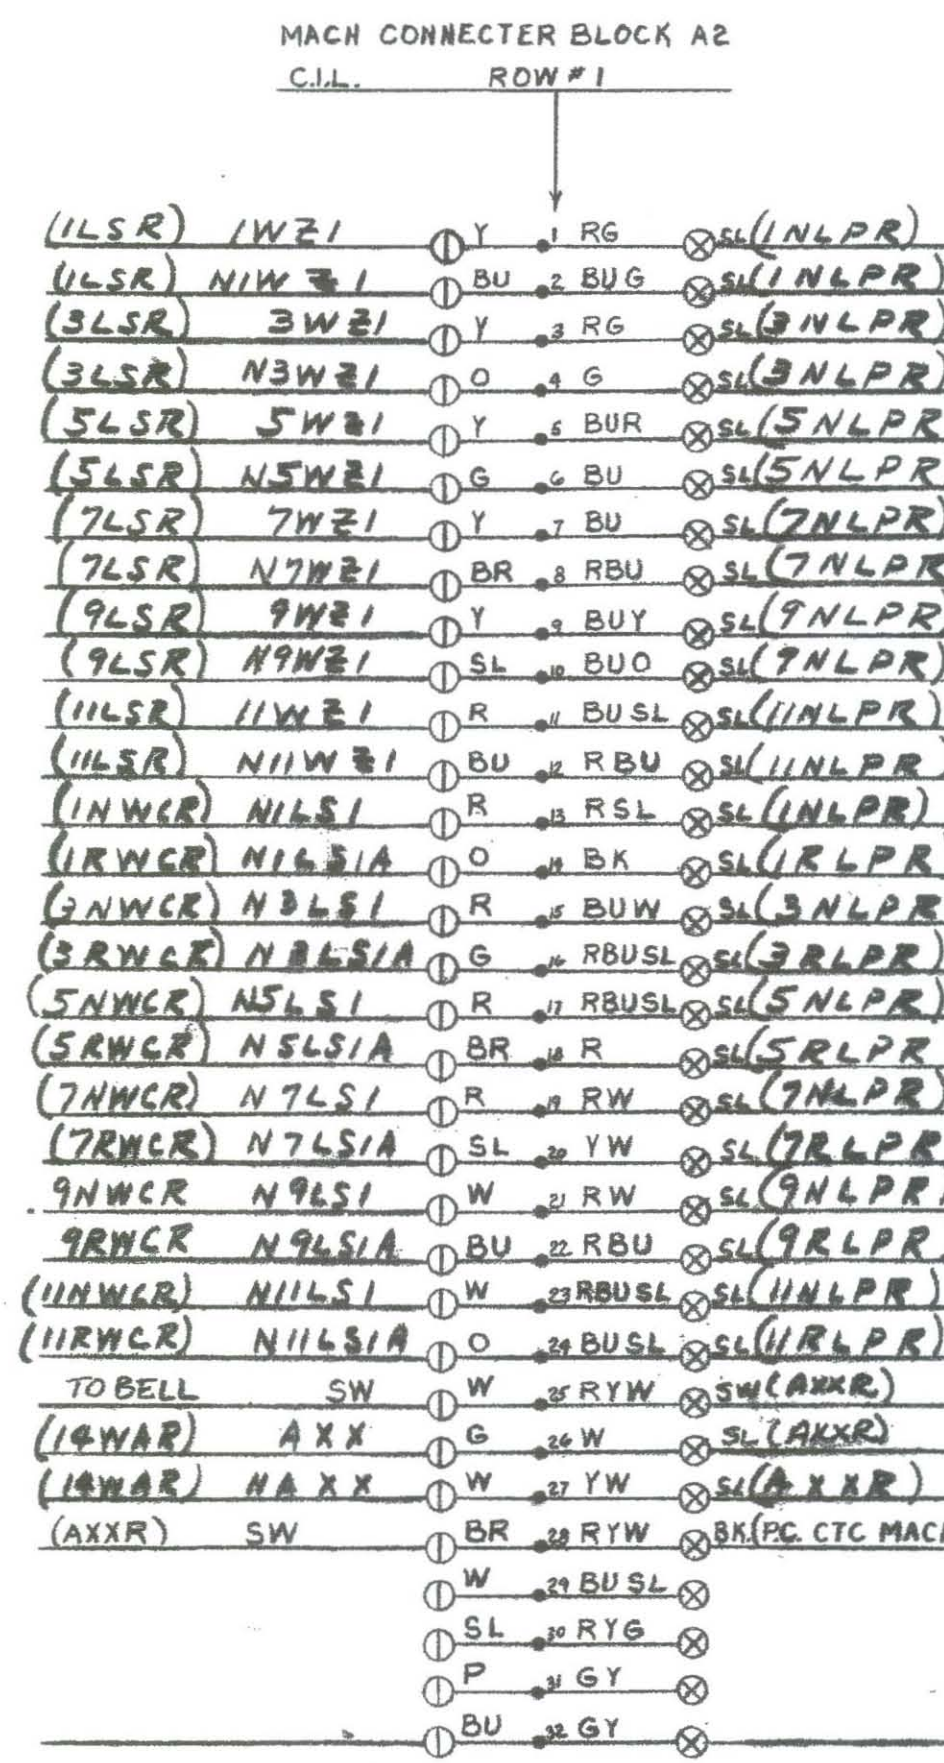 MACH CONNECTER BLOCK A2
C.I.L. ROW # 1
(1LSR) 1WZ1 Y 1 RG SL (1NLPR)
(1LSR) N1WZ1 BU 2 BUG SL (1NLPR)
(3LSR) 3WZ1 Y 3 RG SL (3NLPR)
(3LSR) N3WZ1 O 4 G SL (3NLPR)
(5LSR) 5WZ1 Y 5 BUR SL (5NLPR
(5LSR) N5WZ1 G 6 BU SL (5NLPR
(7LSR) 7WZ1 Y 7 BU SL (7NLPR)
(7LSR) N7WZ1 BR 8 RBU SL (7NLPR
(9LSR) 9WZ1 Y 9 BUY SL (9NLPR
(9LSR) N9WZ1 SL 10 BUO SL (9NLPR)
(11LSR) 11WZ1 R 11 BUSL SL (11NLPR)
(11LSR) N11WZ1 BU 12 RBU SL (11NLPR)
(1NWCR) N1LS1 R 13 RSL SL (1NLPR)
(1RWCR) N1LS1A O 14 BK SL (1RLPR
(3NWCR) N3LS1 R 15 BUW SL (3NLPR
(3RWCR) N3LS1A G 16 RBUSL SL (3RLPR)
(5NWCR) N5LS1 R 17 RBUSL SL (5NLPR)
(5RWCR) N5LS1A BR 18 R SL (5RLPR
(7NWCR) N7LS1 R 19 RW SL (7NLPR)
(7RWCR) N7LS1A SL 20 YW SL (7RLPR
9NWCR N9LS1 W 21 RW SL (9NLPR
9RWCR N9LS1A BU 22 RBU SL (9RLPR
(11NWCR) N11LS1 W 23 RBUSL SL (11NLPR)
(11RWCR) N11LS1A O 24 BUSL SL (11RLPR)
TO BELL SW W 25 RYW SW (AXXR)
(14WAR) AXX G 26 W SL (AXXR)
(14WAR) NAXX W 27 YW SL (AXXR)
(AXXR) SW BR 28 RYW BK (P.C. CTC MACH
W 29 BUSL
SL 30 RYG
P 31 GY
BU 32 GY